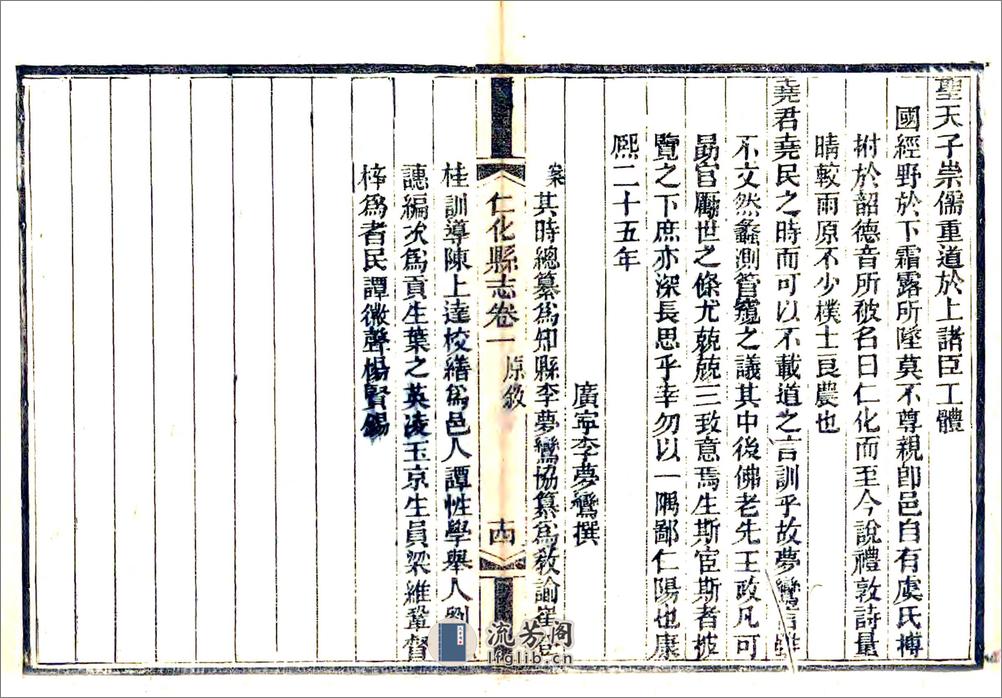 聖天子崇儒重道於上諸臣工體
國經野於下霜露所墜莫不尊親卽邑自有虞氏搏
拊於韶德音所被名曰仁化而至今說禮敦詩量
晴較雨原不少樸士良農也
堯君堯民之時而可以不載道之言訓乎故夢鸞言
不文然蠡測管窺之議其中後佛老先王政凡可
勗官勵世之條尤兢兢三致意焉生斯宦斯者披
覽之下庶亦深長思乎幸勿以一隅鄙仁陽也康
熙二十五年
廣寧李夢鸞撰
仁化縣志卷一
原敘
十四
案其時總纂爲知縣李夢鸞協纂爲敎諭崔
桂訓導陳上達校繕爲邑人譚性學舉人劉
譓編次爲貢生葉之英凌玉京生員梁維鞏督
梓爲者民譚微聲楊賢錫
流芳閣
lfglib.cn